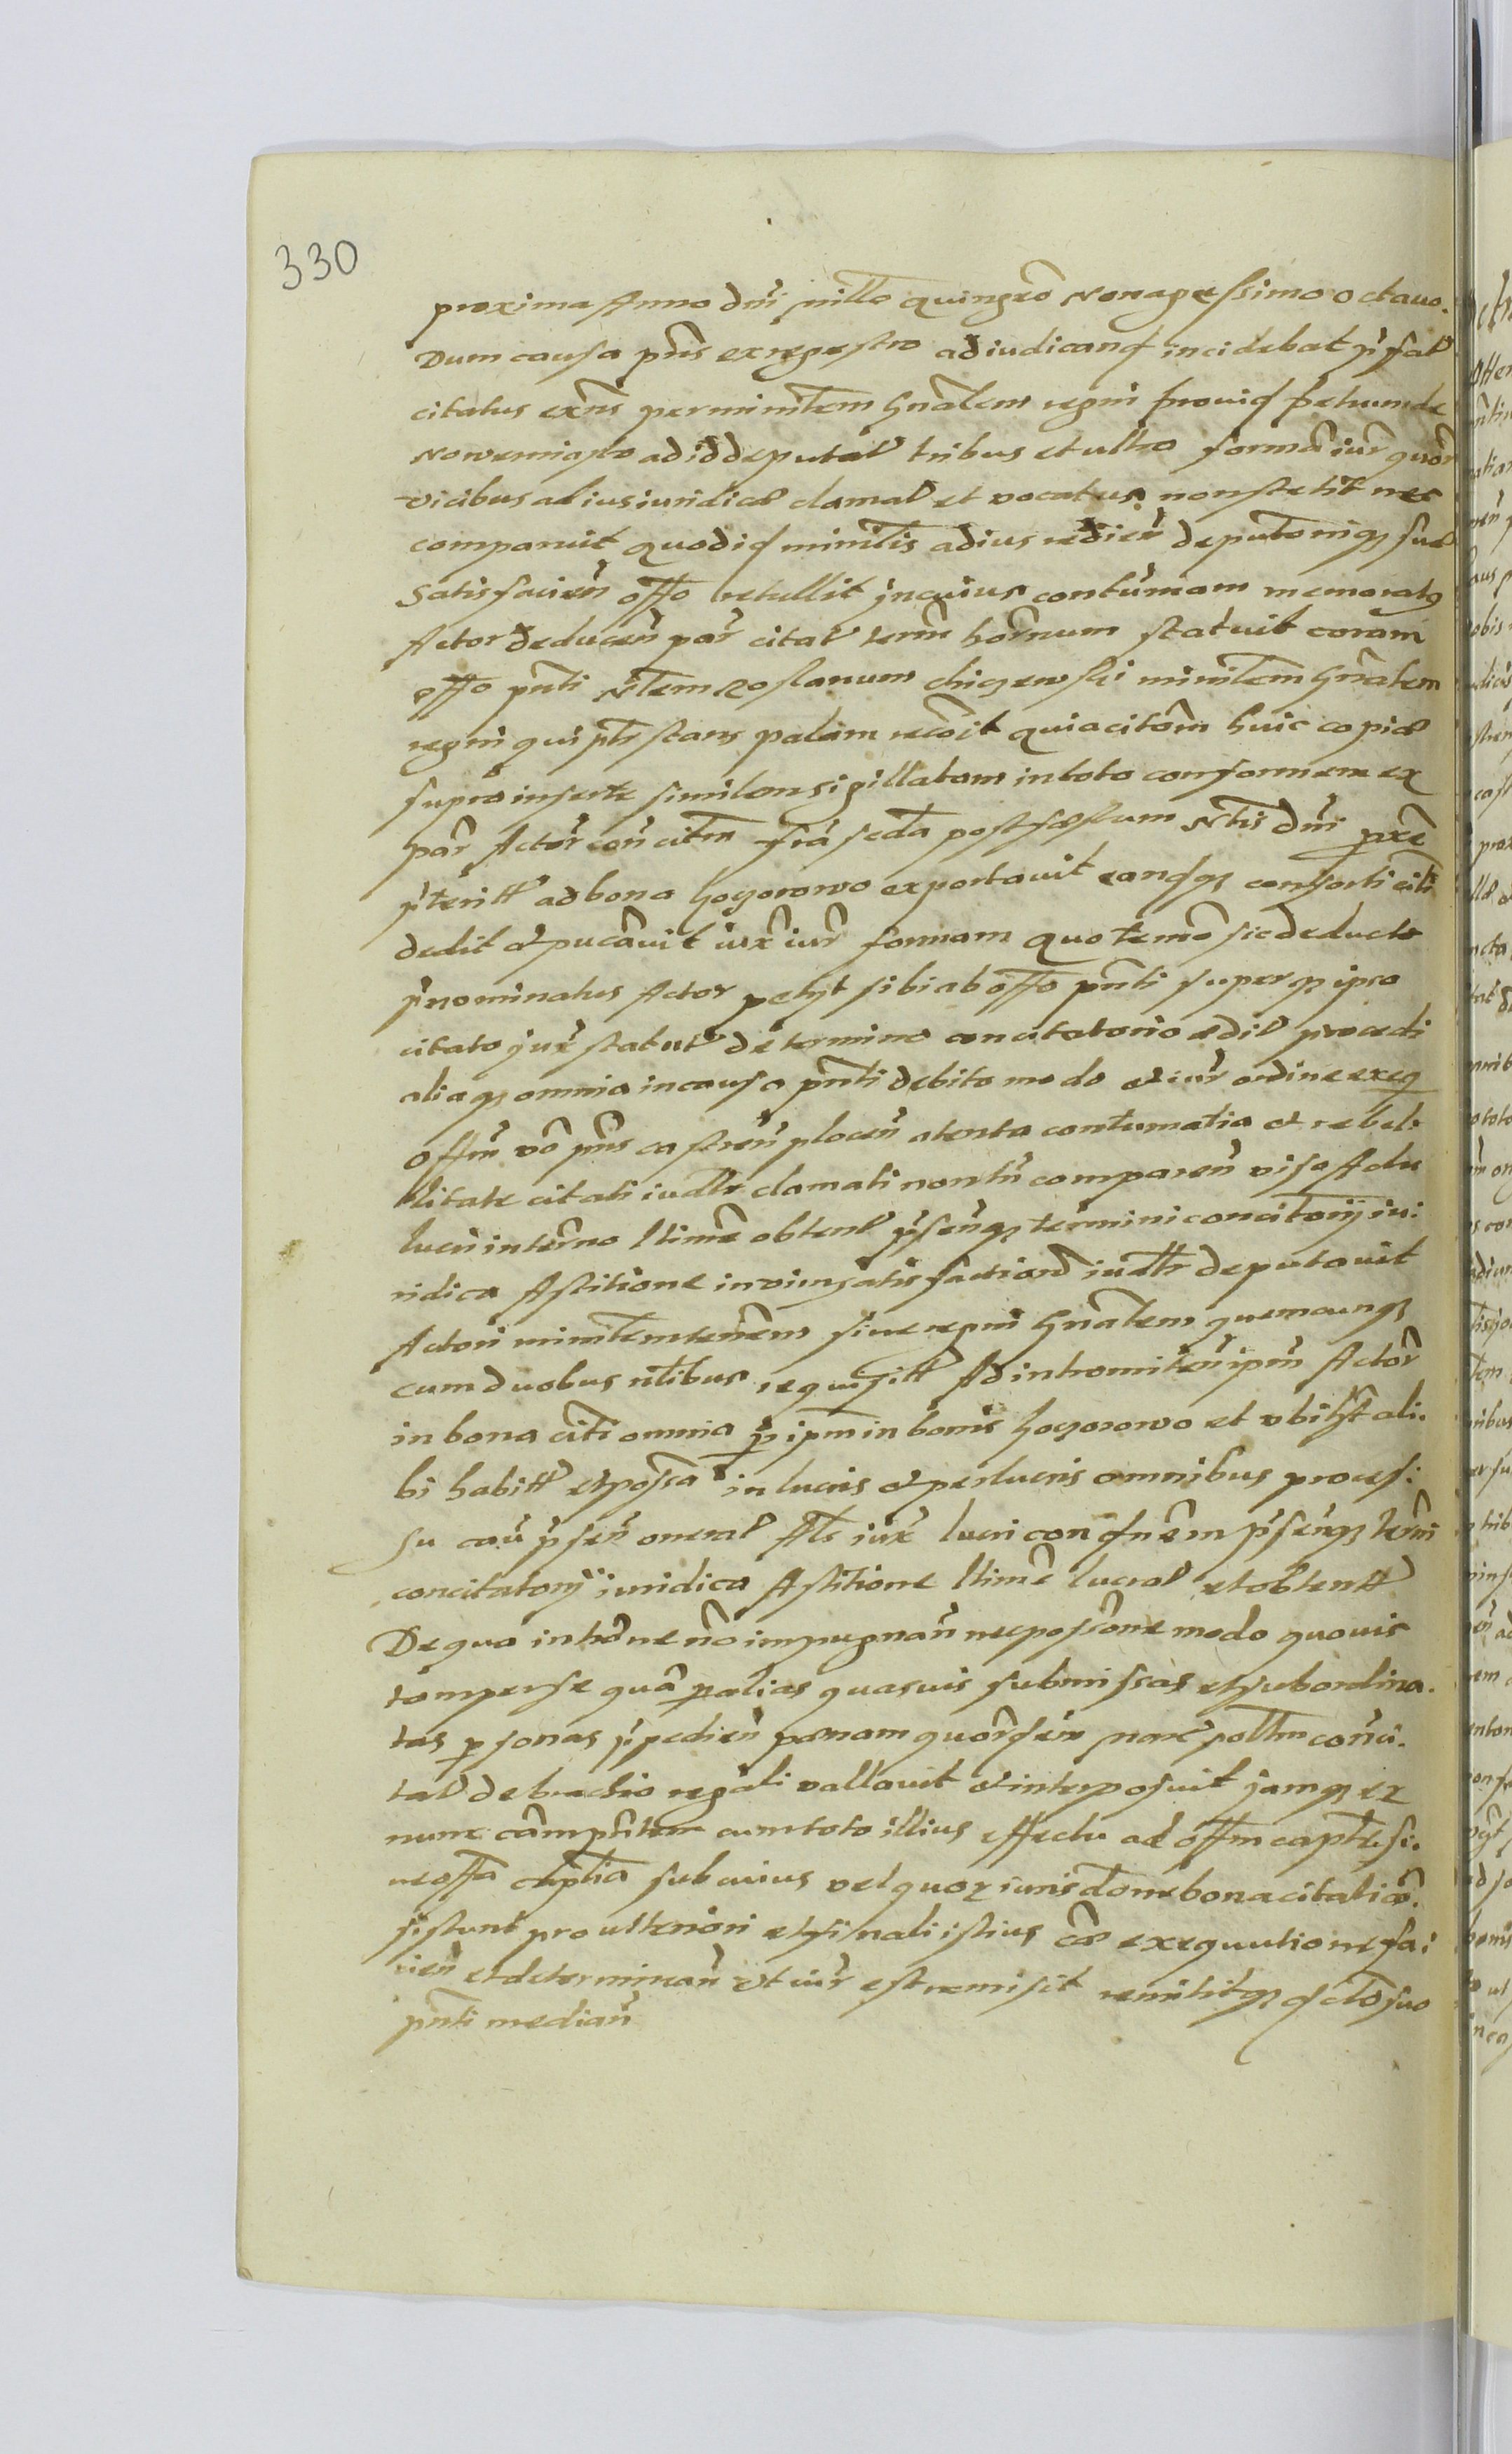 330
proxima Anno dni millo quingeo Nonagessimo octauo.
Dum causa pns ex regestro adiudicand incidebat pfat
citatus exns per ministem gnalem regni provid petrum de
Nowemiasto ad id deputat tribus et ultro forma iur quor
vicibus ad ius iuridice clamat et vocatus non stetit nec
comparuit quod id minilis ad ius redien deputoniq sue
Satisfacien offo retullit in cuius contumam memoratq
Actor deducen par citat term hornum statuit coram
offo pnti Ntem chigewski minitem gnalem
regni qui pntr stans palam recoit quia citom huic copiæ
supra inserte similem sigillatam in toto conformem ex
par Actor con citm fria scda post festum Ntis dni pxe
pteriti ad bona hogorowo exportavit eandq consorti citi
dedit et pucavit iux iur formam quo termo sic deducto
pnominatus Actor petyt sibi ab offo pnti superq ipso
citato jux statut de termino concitatorio edit procedi
aliaq omnia in causa pnti debito modo et iur ordine exeq
Offm vo pns castren plocen atenta contumatia et rebel:
litate citati iudlr clamati non tn comparen viso Actu
lucri in termo ltime obtent psenq termini concitorij iu:
ridica Astitione in vim satisfactionis iudlr deputavit
Actori ministem terrem sive regni gnalem quemcunq
cum duobus nlibus requisitt Ad intromiten ipm Actor
in bona citi omnia p ipm in bonis hogorowo et vbi ht ali.
bi habitt et possa in lucris et perlucris omnibus proces:
su cau psen onerat Als iux lucri condnem psenq termi
concitatorij iuridica Astitione ltime lucrat et obtentt
De qua introne no impugnan nec possone modo quovis
tam per se qua p alias quasuis submissas et subordina.
tas psonas ppedien pænam quordem marc pollm conci.
tat de brachio regali vallavit et interposuit jamq ex
nunc cam pntem cum toto illius effectu ad offm captle si.
ve offa captlia sub cuius vel quor iurisdone bona citati con.
sistunt pro ulteriori et finali istius cæ exequutione fa:
cien et determinan vt iur est remisit remititq dcto suo
pnti median